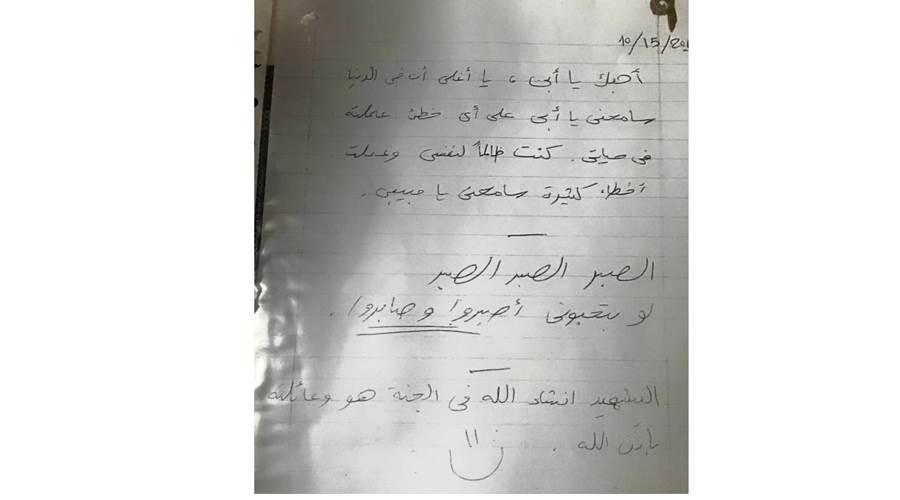 10/15/20
أحبك يا أبي ، يا أغلى أب في الدنيا
سامحني يا أبي على أي خطئ عملته
في حياتي . كنت ظالماً لنفسي وعملت
أخطاء كثيرة سامحني يا حبيبي .
الصبر الصبر الصبر
لو بتحبوني أصبروا وصابروا .
الشهيد انشاء الله في الجنة هو وعائلته
بإذن الله .